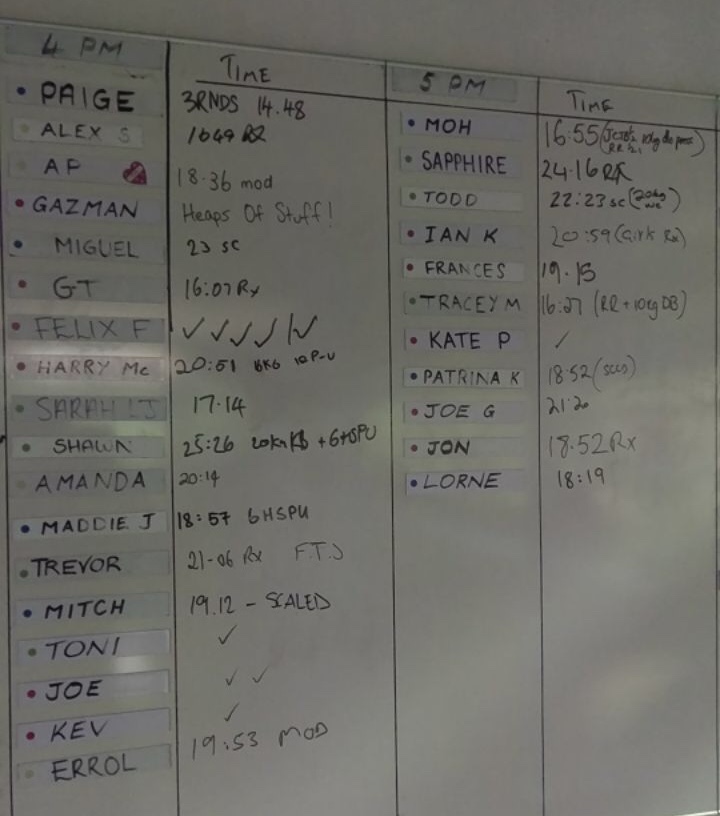 4 PM TIME
PAIGE 3RNDS 14.48
ALEX S 1649 RX
AP 18.36 mod
GAZMAN Heaps Of Stuff!
MIGUEL 23 SC
GT 16:07 Rx
FELIX F ✓ ✓ ✓ ✓ ✓
HARRY Mc 20:51 16KG
SARAH LJ 17.14
SHAWN 25:26 20kg KB
AMANDA 20:14
MADDIE J 18:57 6HSPU
TREVOR 21-06 Rx F.T.J
MITCH 19.12 - SCALED
TONI ✓
JOE ✓ ✓
KEV ✓
ERROL 19:53 MOD
5 PM TIME
MOH 16:55
SAPPHIRE 24.16 RX
TODD 22:23 SC (20kg
IAN K 20:59 (Girk Rx)
FRANCES 19.15
TRACEY M 16:27 (RR + 10kg DB)
KATE P ✓
PATRINA K 18:52
JOE G 21:20
JON 18.52 Rx
LORNE 18:19